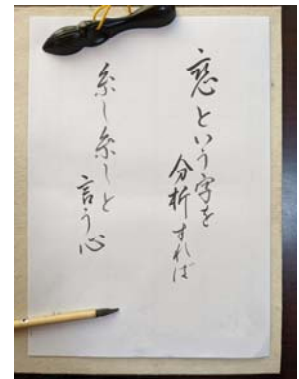 戀という字を
分析すれば
糸し糸しと
言う心